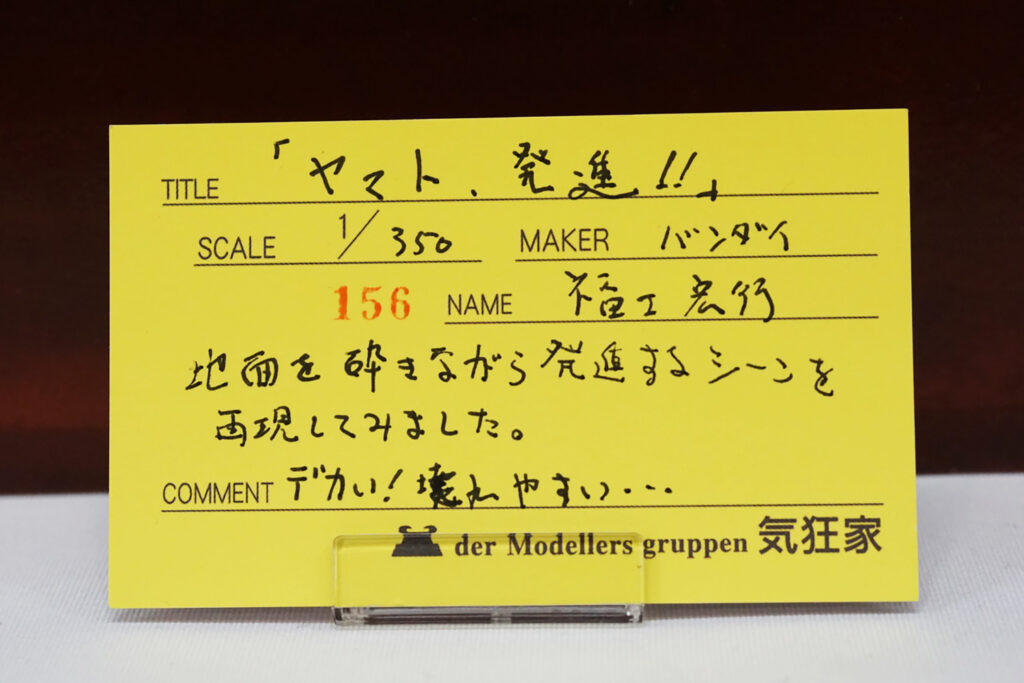 TITLE 「ヤマト、発進!!」
SCALE 1/350 MAKER バンダイ
156 NAME 福工宏行
地面を砕きながら発進するシーンを
再現してみました。
COMMENT デカい!壊れやすい・・・
der Modellers gruppen 気狂家